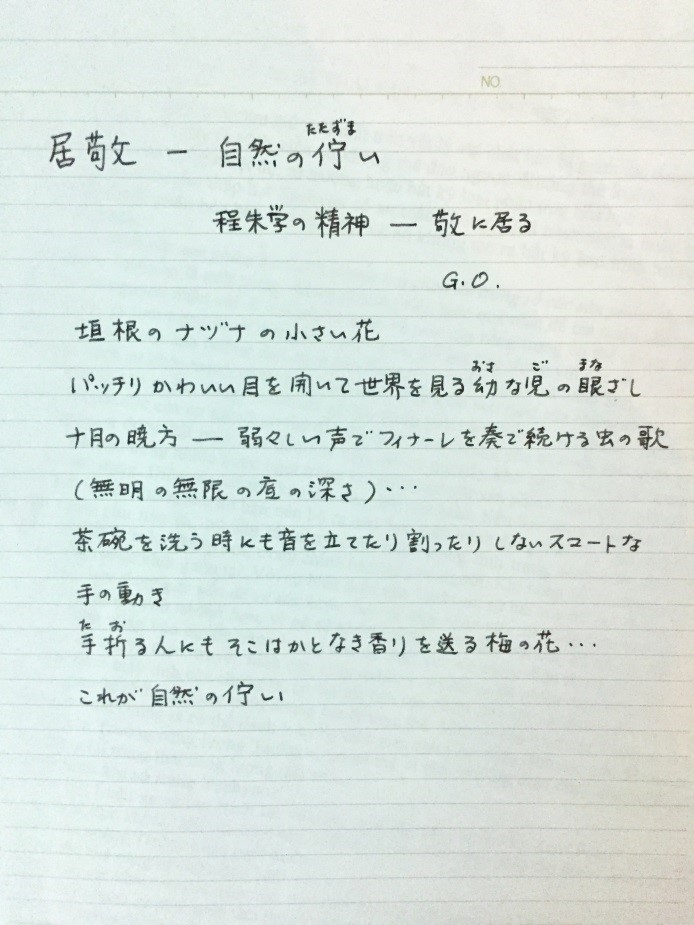 NO.
居敬 ― 自然の佇い
たたずま
程朱学の精神 ― 敬に居る
G.O.
垣根のナヅナの小さい花
パッチリかわいい目を開いて世界を見る幼な児の眼ざし
おさ ご まな
十月の暁方 ― 弱々しい声でフィナーレを奏で続ける虫の歌
(無明の無限の夜の深さ)・・・
茶碗を洗う時にも音を立てたり割ったりしないスマートな
手の動き
た お
手折る人にもそこはかとなき香りを送る梅の花・・・
これが自然の佇い